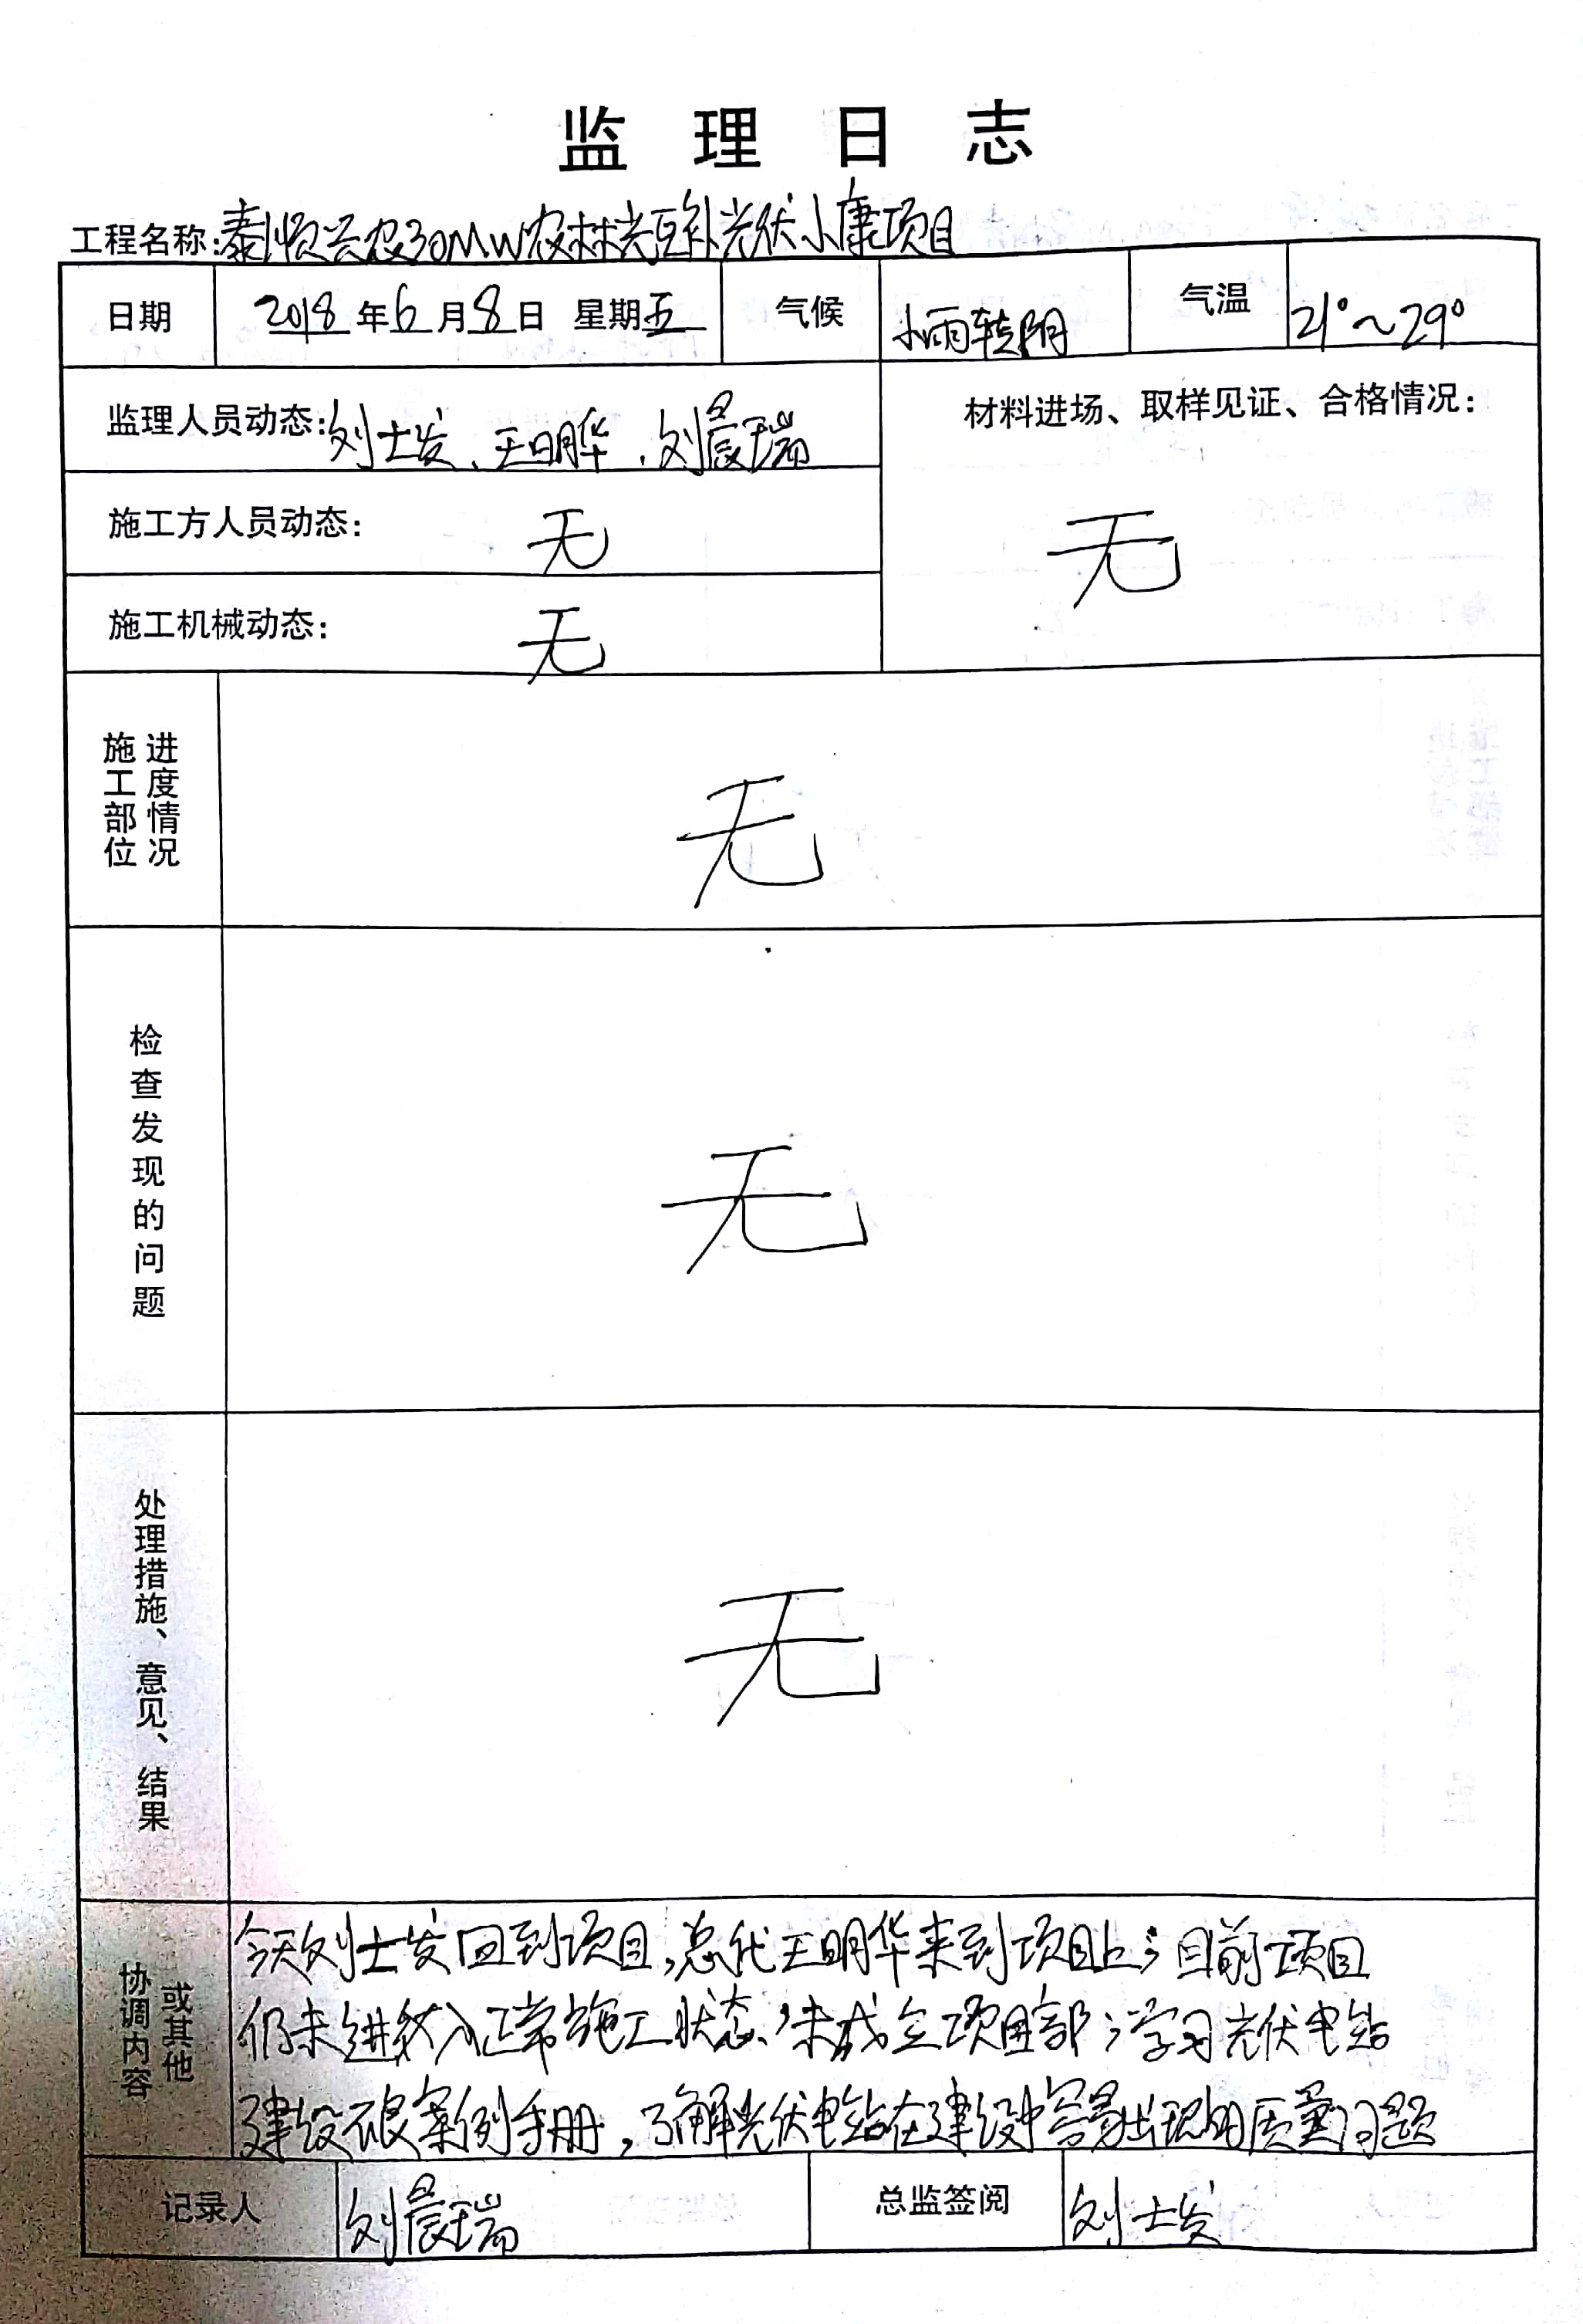 监理日志
工程名称:泰顺兴农30MW农林光互补光伏小康项目
日期 2018年6月8日 星期五 气候 小雨转阴 气温 21°~29°
监理人员动态:刘士发、王明华、刘晨瑞
材料进场、取样见证、合格情况:
无
施工方人员动态: 无
施工机械动态: 无
施工部位
进度情况
无
检查发现的问题
无
处理措施、意见、结果
无
协调内容
或其他
今天刘士发回到项目,总代王明华来到项目上;目前项目
仍未进入正常施工状态,未成立项目部;学习光伏电站
建设不良案例手册,了解光伏电站在建设中容易出现的质量问题
记录人 刘晨瑞 总监签阅 刘士发